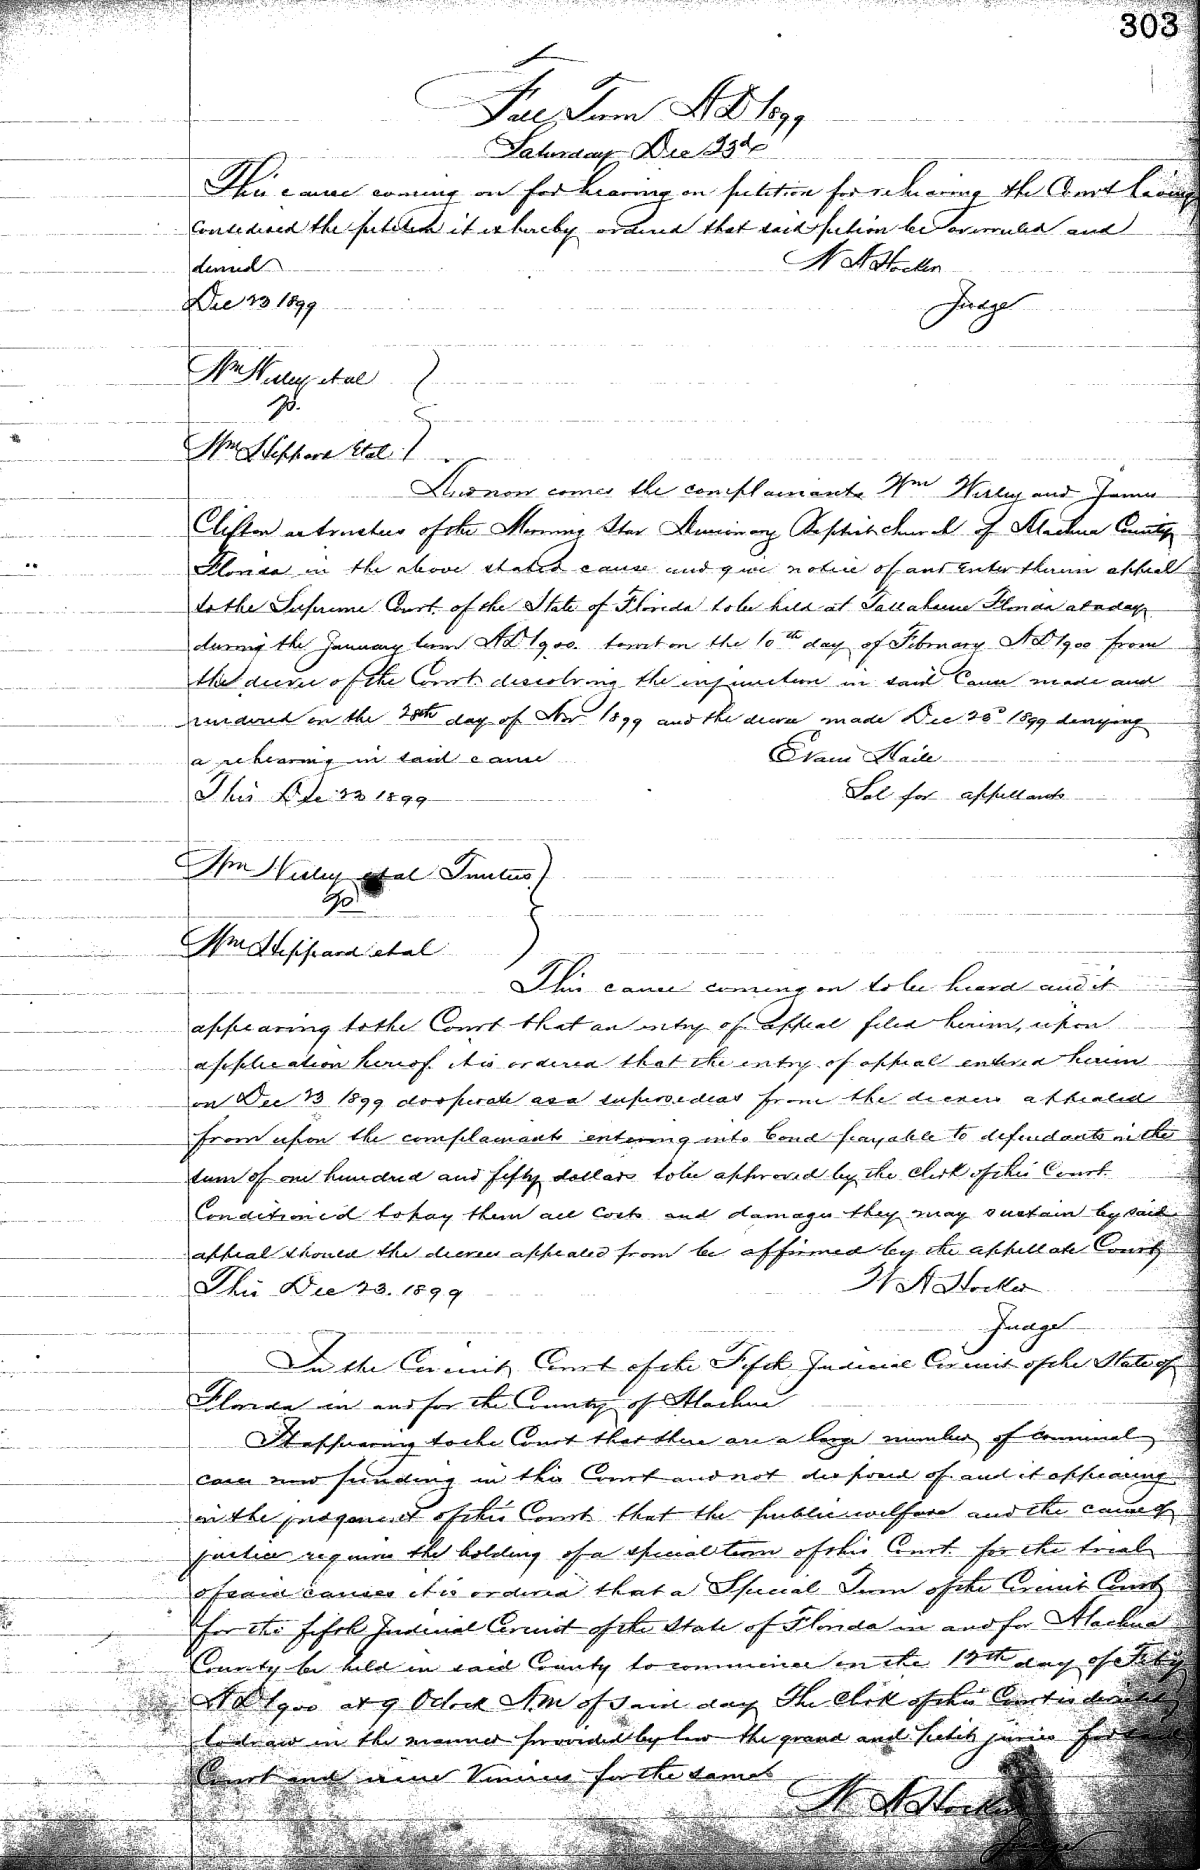 303
Fall Term A D 1899
Saturday Dec 23d
This cause coming on for hearing on petition for rehearing the Court having
considered the petition it is hereby ordered that said petion be overruled and
denied W A Hocker
Dec 23 1899 Judge
Wm Wesley et al
vs.
Wm Sheppard Etal
And now comes the complainants Wm Wesley and James
Clifton as trustees of the Morning Star Baptist church of Alachua County
Florida in the above stated cause and give notice of and Enter therein appeal
to the Supreme Court of the State of Florida to be held at Tallahassee Florida at a day
during the January term A D 1900. towit on the 10th day of February A D 1900 from
the decree of the Court dissolving the injunction in said Cause made and
rendered on the 28th day of Nov 1899 and the decree made Dec 23d 1899 denying
a rehearing in said cause Evans Haile
This Dec 23 1899 Sol for appellants
Wm Wesley et al Trustees
vs
Wm Sheppard et al
This cause coming on to be heard and it
appearing to the Court that an entry of appeal filed herein, upon
application hereof it is ordered that the entry of appeal entered herein
on Dec 23 1899 do operate as a supersedeas from the decrees appealed
from upon the complainants entering into bond payable to defendants in the
sum of one hundred and fifty dollars to be approved by the clerk of this Court.
Conditioned to pay them all costs and damages they may sustain by said
appeal should the decrees appealed from be affirmed by the appellate Court
This Dec 23. 1899 W A Hocker
Judge
In the Circuit Court of the Fifth Judicial Circuit of the State of
Florida in and for the County of Alachua
It appearing to the Court that there are a large number of criminal
cases now pending in this Court and not disposed of and it appearing
in the judgement of this Court that the public welfare and the cause of
justice requires the holding of a special term of this Court for the trial
of said causes it is ordered that a Special Term of the Circuit Court
for the fifth Judicial Circuit of the State of Florida in and for Alachua
County be held in said County to commence on the day of Feby
A D 1900 at 9 Oclock A M of said day The Clerk of this Court is directed
to draw in the manner provided by law the grand and petit juries for said
Court and issue Venires for the same
W A Hocker
Judge